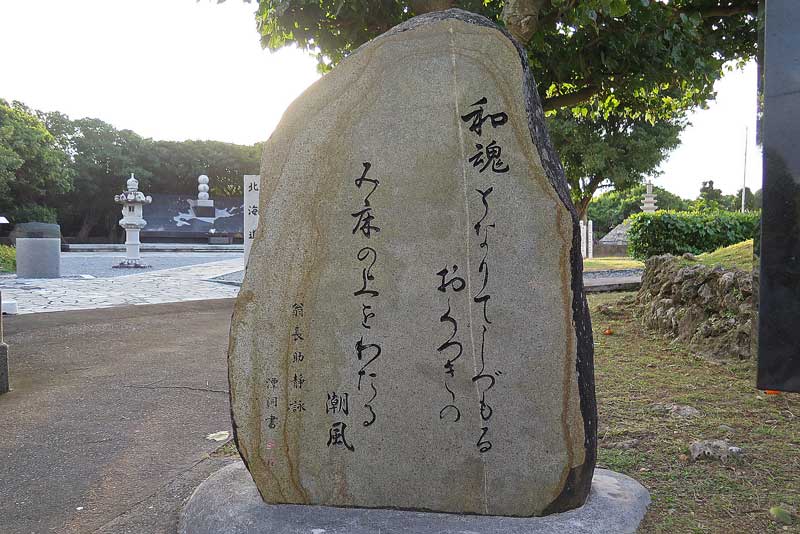 和魂となりてしづもる
おくつきの
み床の上をわたる
潮風
翁長助静詠
書
北海道